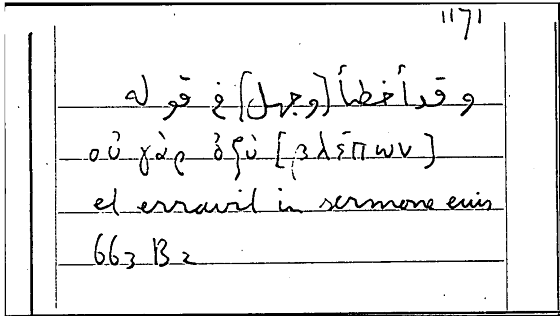 1171
وقد أخطأ [وجهل] في قوله
οὐ γὰρ ὀξὺ [βλέπων]
et erravit in sermone eius
663 B 2